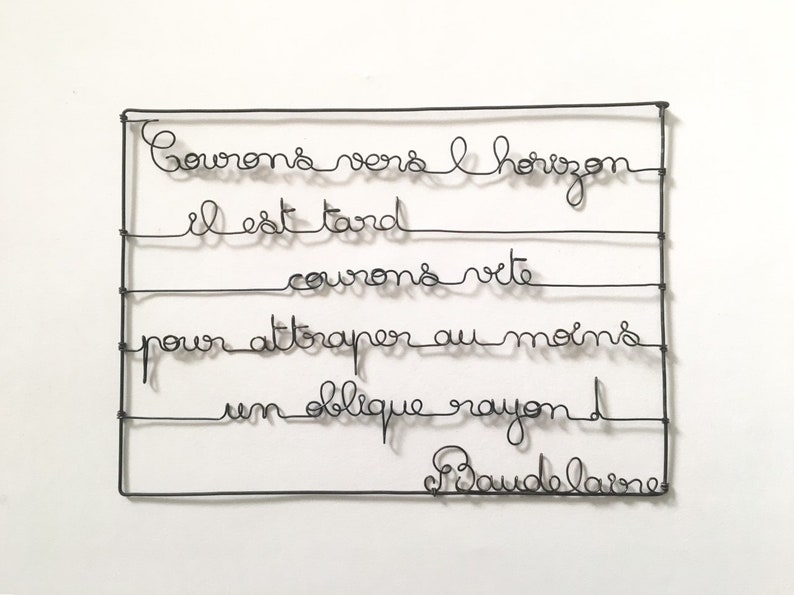 Courons vers l horizon
il est tard
courons vite
pour attraper au moins
un oblique rayon !
Baudelaire